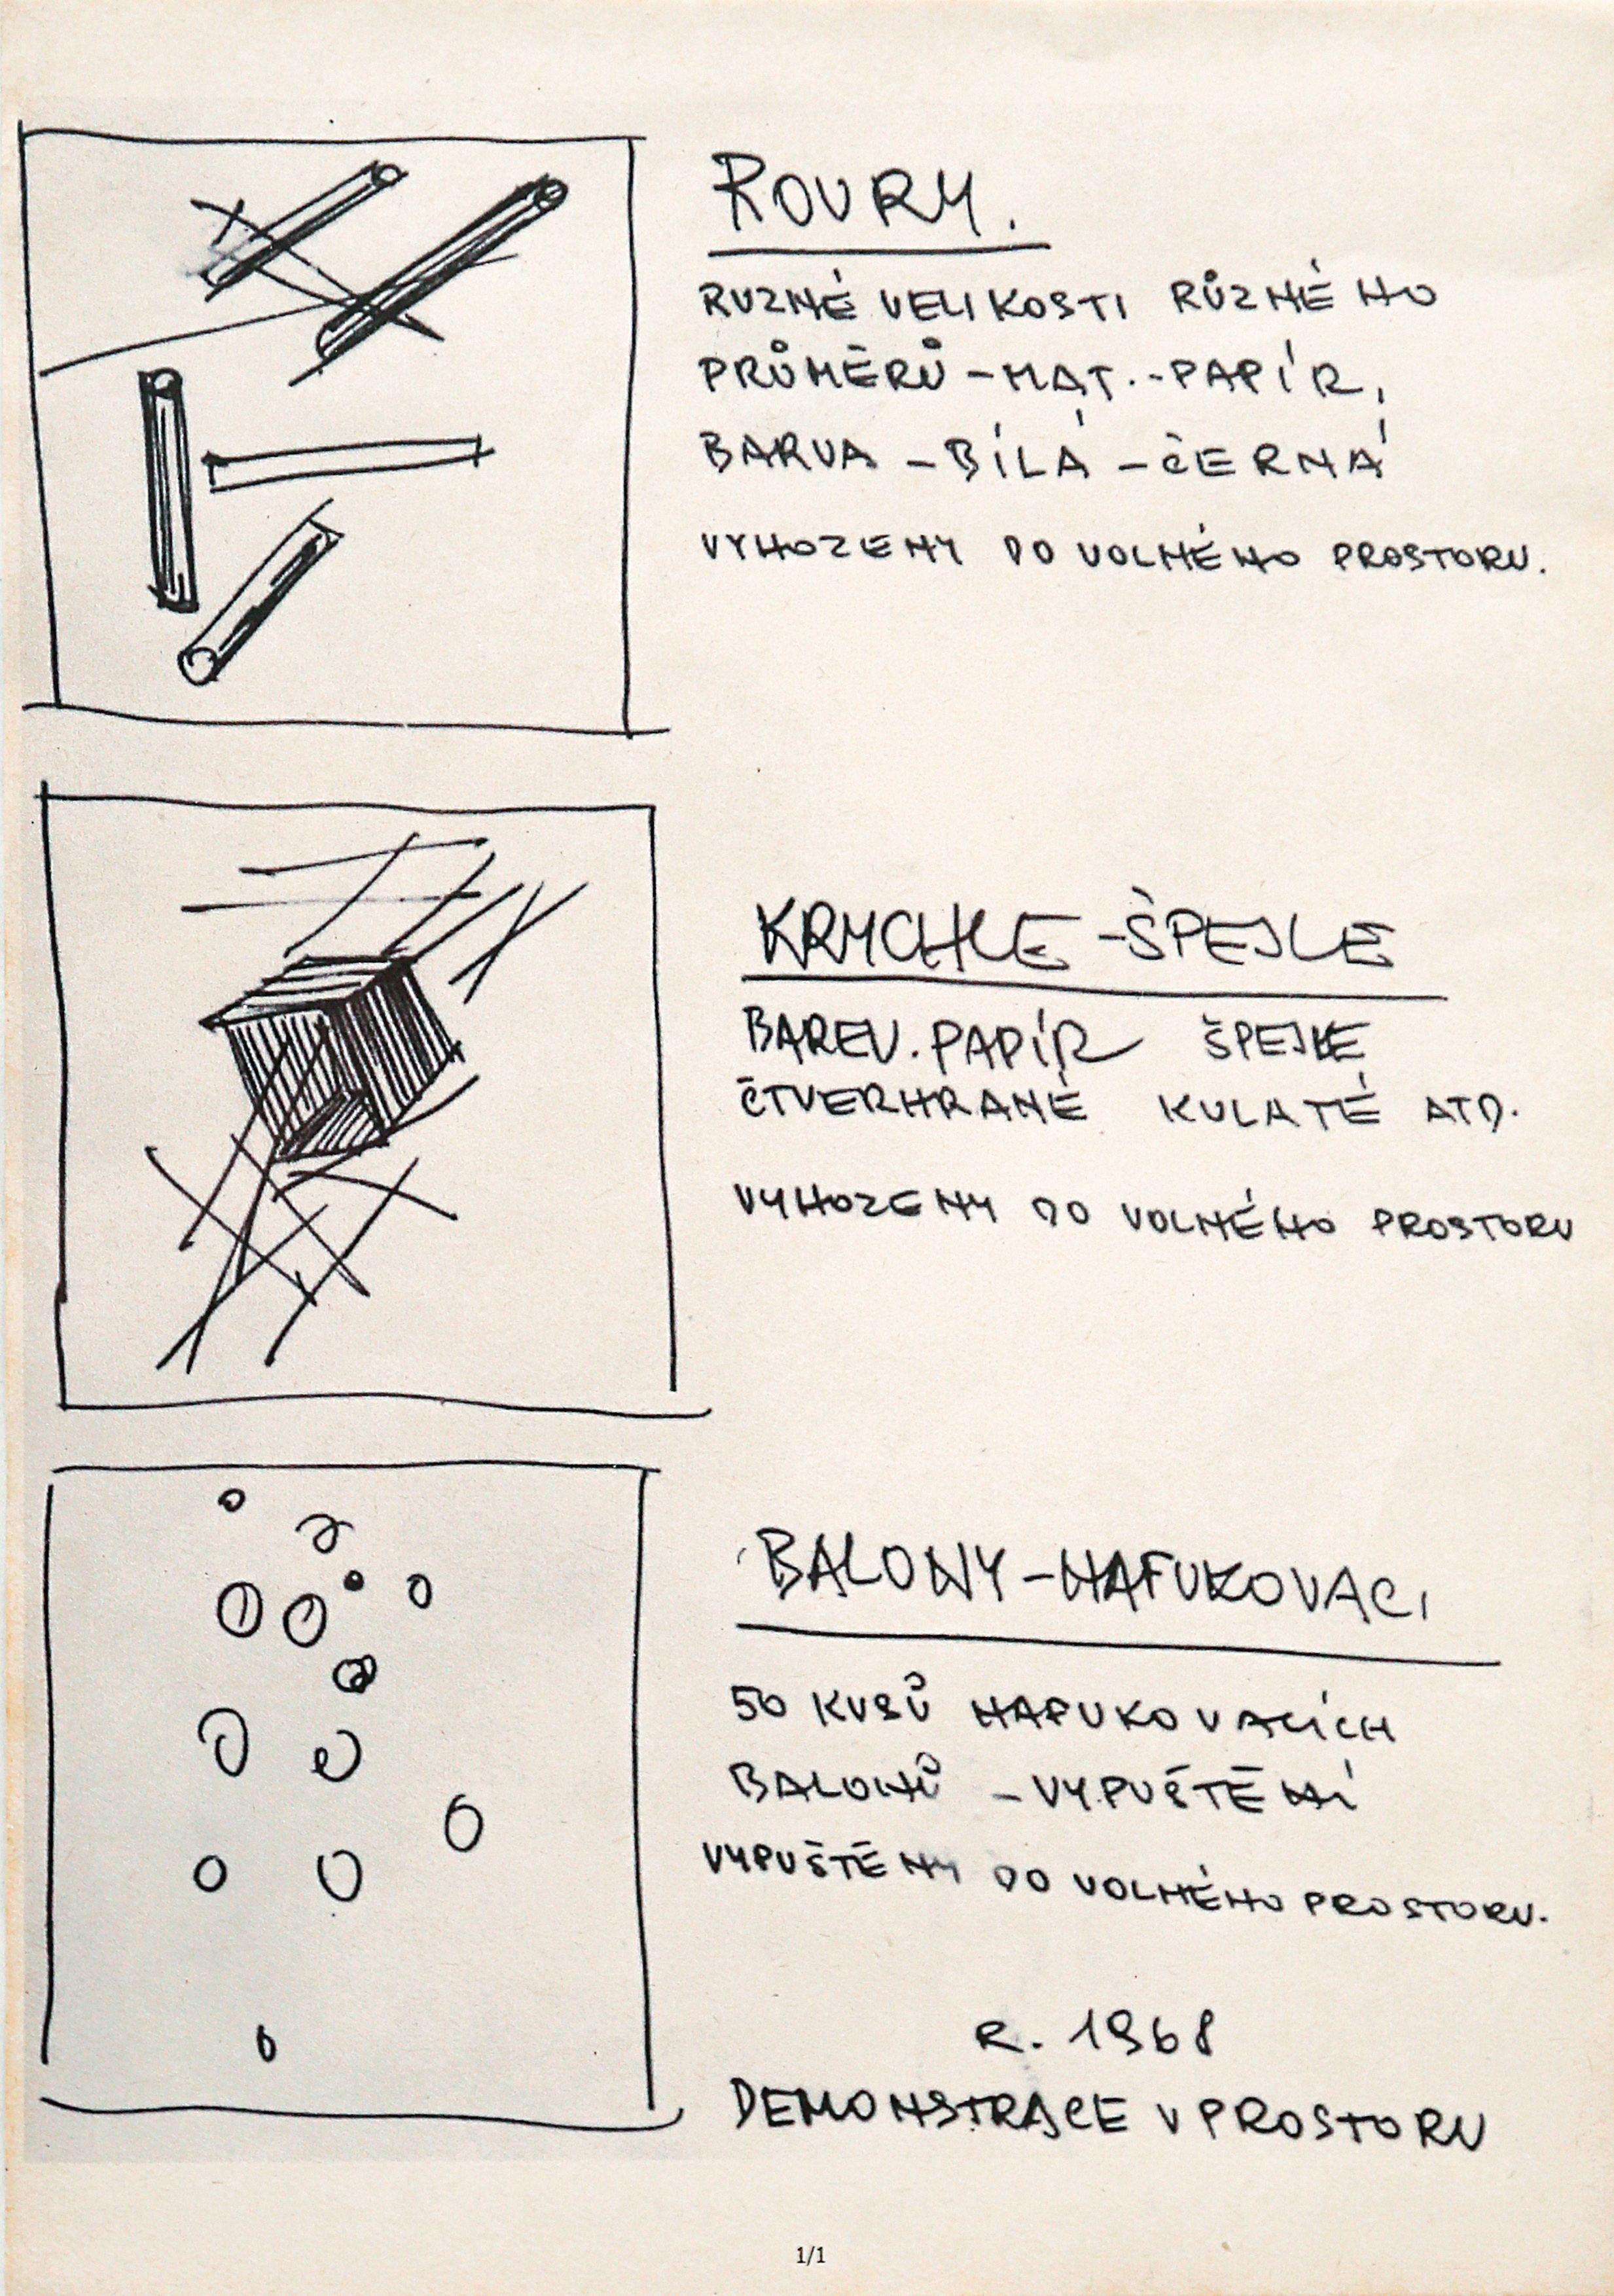 ROURY.
RUZNÉ VELIKOSTI RŮZNÉHO
PRŮMĚRŮ - MAT. - PAPÍR,
BARVA - BÍLÁ - ČERNÁ
VYHOZENY DO VOLNÉHO PROSTORU.
KRYCHLE - ŠPEJLE
BAREV. PAPÍR ŠPEJLE
ČTVERHRANÉ KULATÉ ATD.
VYHOZENY DO VOLNÉHO PROSTORU
BALONY - NAFUKOVACI
50 KUSŮ NAFUKOVACÍCH
BALONŮ - VYPUŠTĚNÍ
VYPUŠTĚNY DO VOLNÉHO PROSTORU.
R. 1968
DEMONSTRACE V PROSTORU
1/1